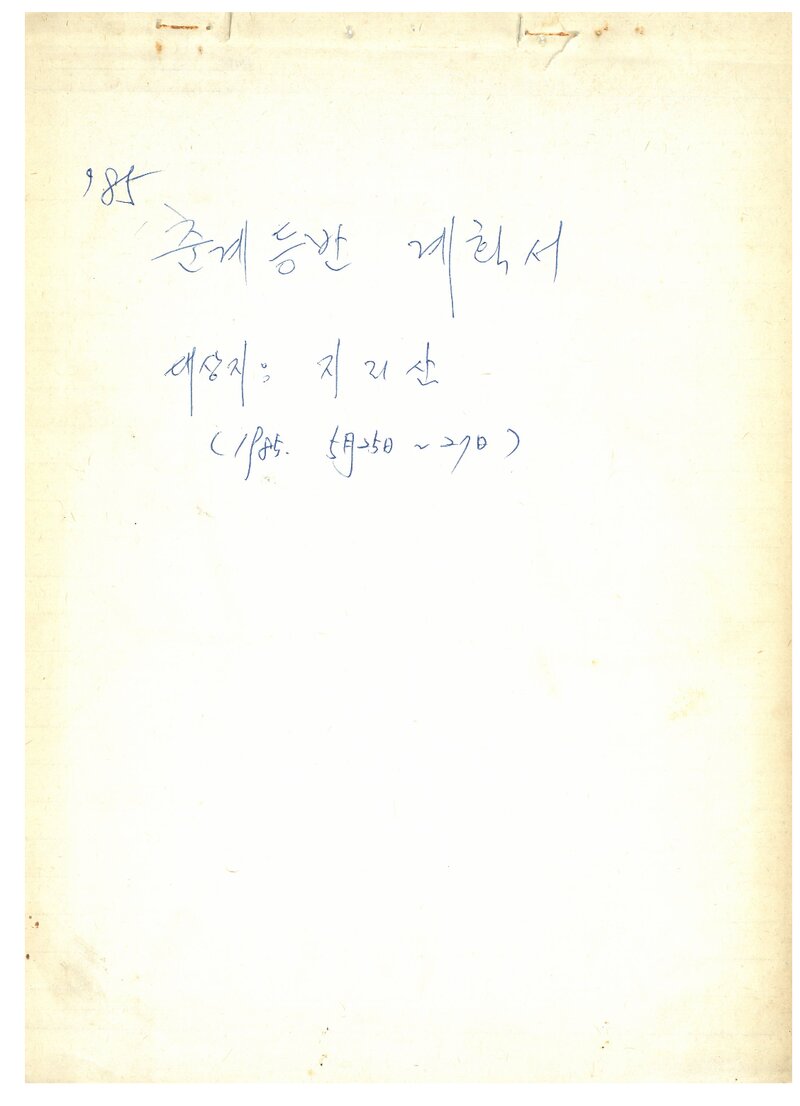 '85
춘계등반 계획서
대상지: 지리산
(1985. 5月25日 ~ 27日)